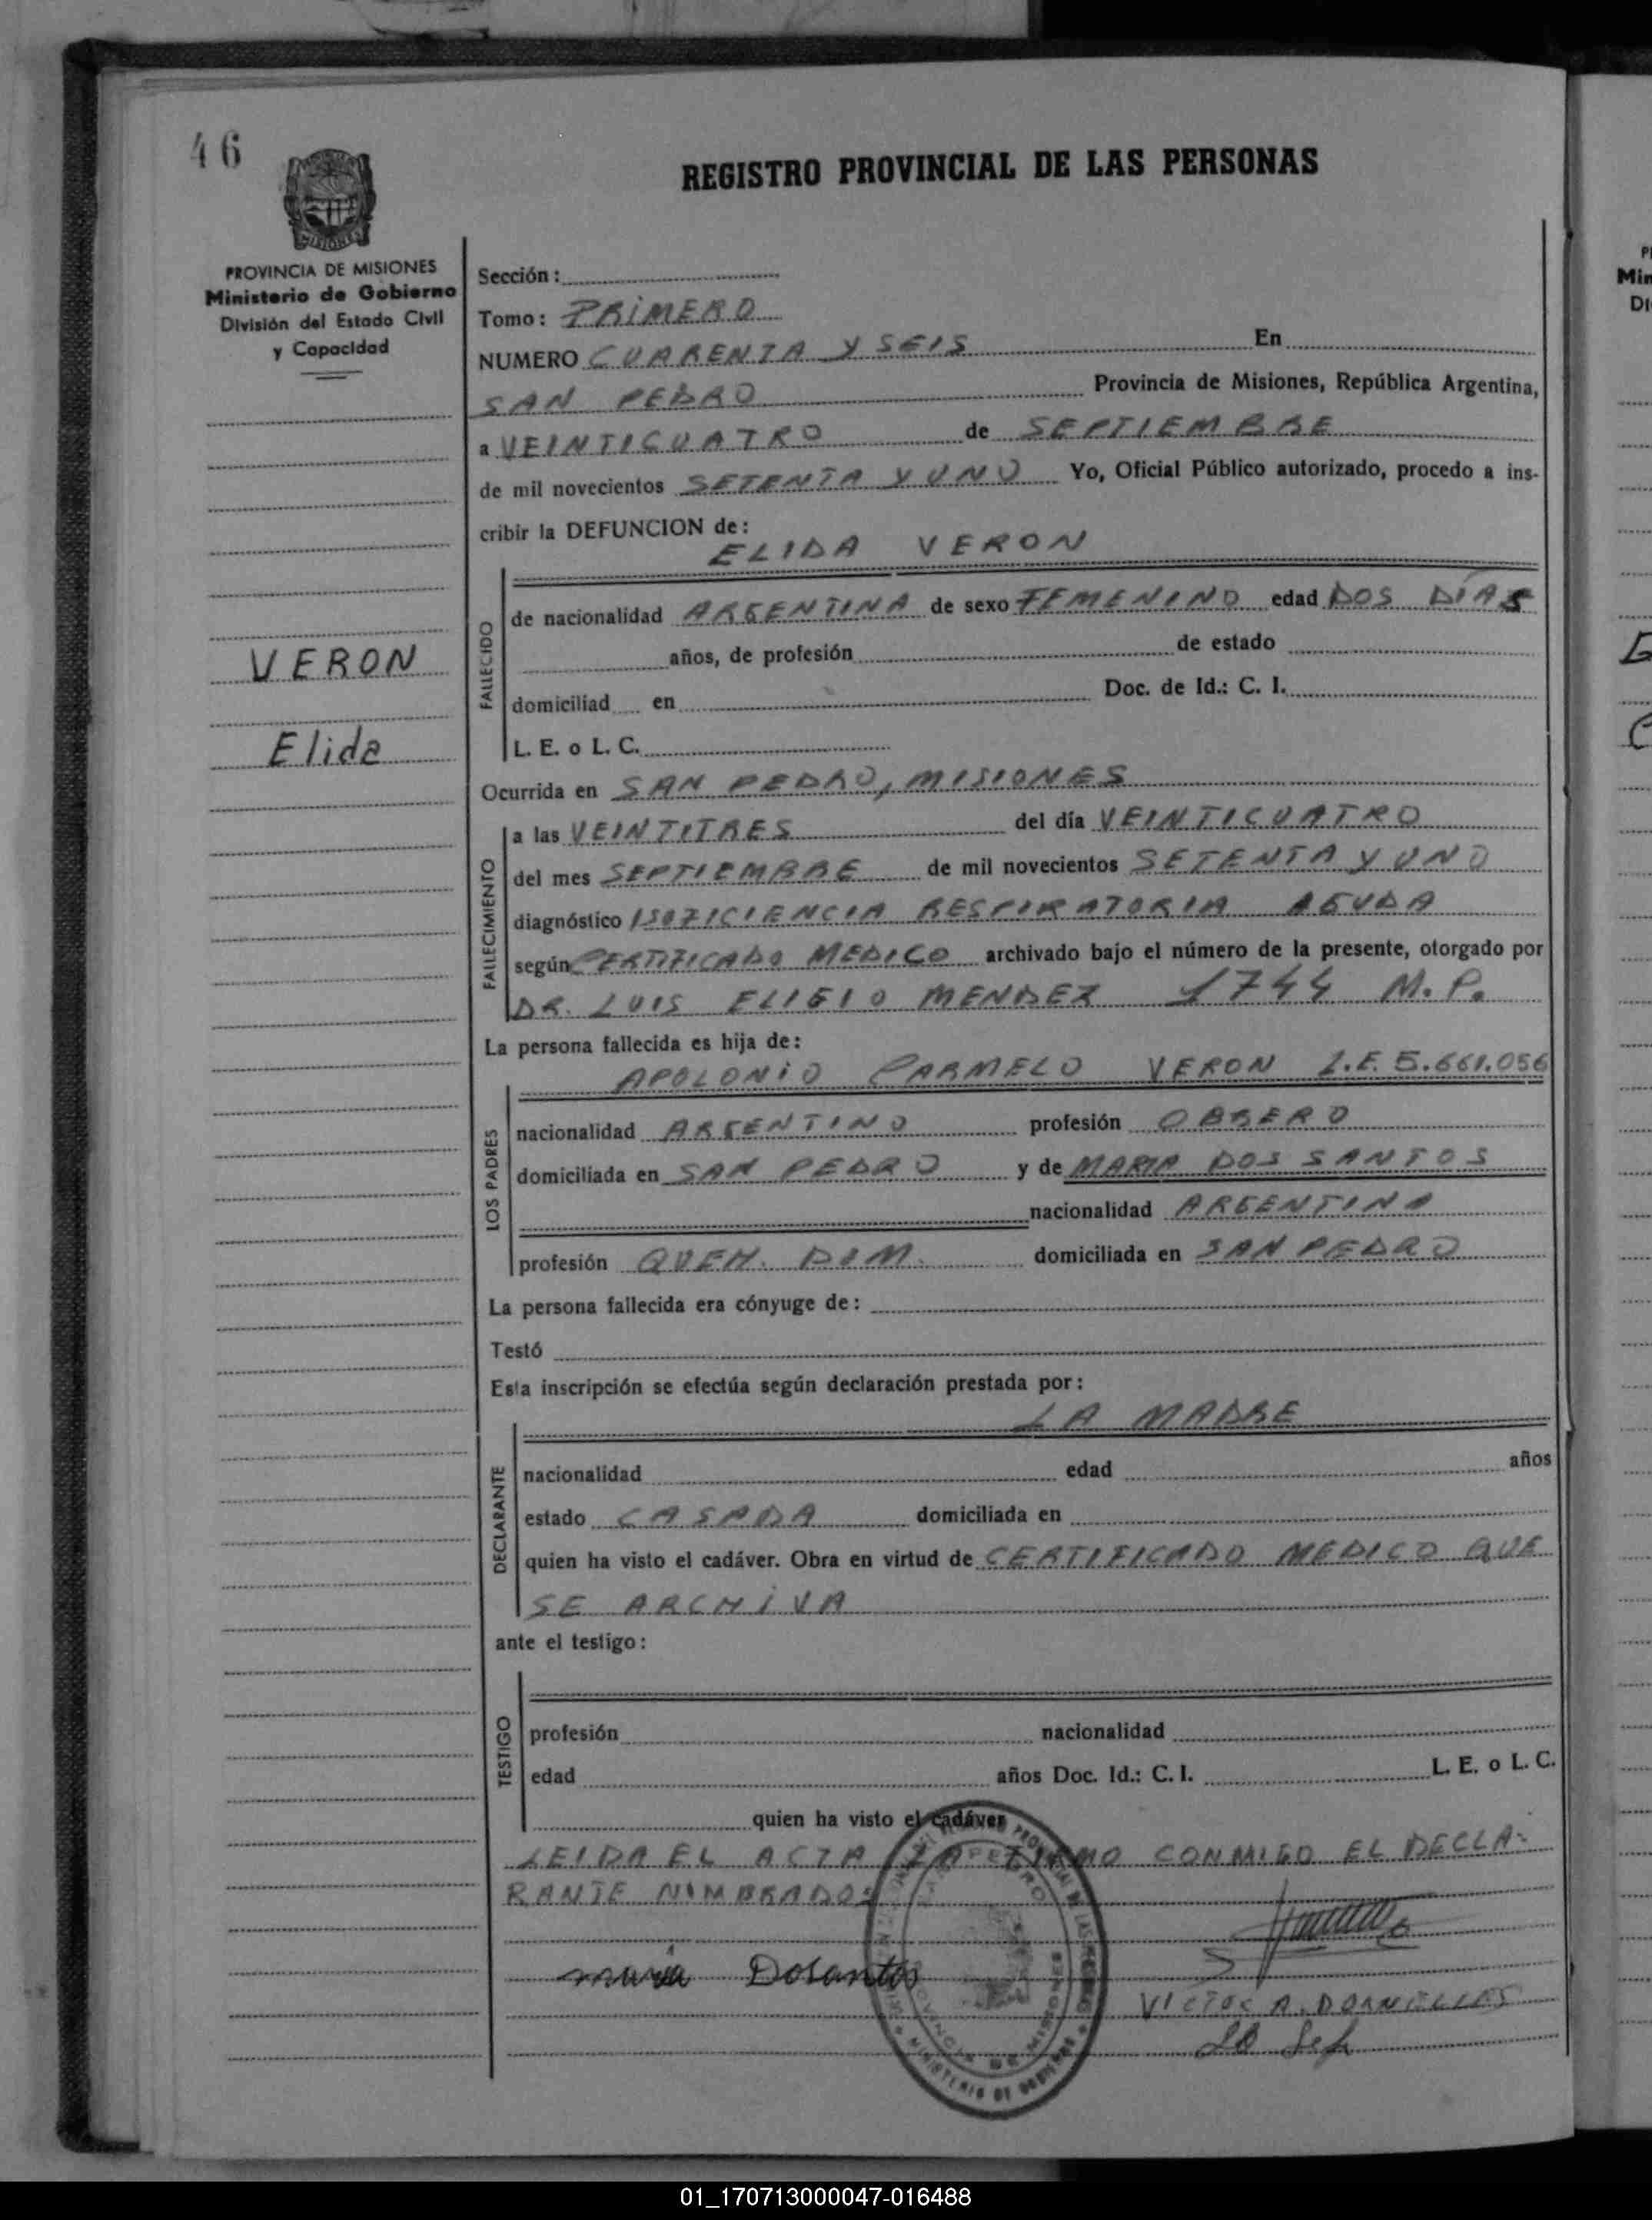 46
REGISTRO PROVINCIAL DE LAS PERSONAS
MISIONES
PROVINCIA DE MISIONES
Ministerio de Gobierno
División del Estado Civil
y Capacidad
VERON
Elida
Sección:
Tomo: PRIMERO
NUMERO CUARENTA Y SEIS En
SAN PEDRO Provincia de Misiones, República Argentina,
a VEINTICUATRO de SEPTIEMBRE
de mil novecientos SETENTA Y UNO Yo, Oficial Público autorizado, procedo a ins-
cribir la DEFUNCION de:
ELIDA VERON
FALLECIDO
de nacionalidad ARGENTINA de sexo FEMENINO edad DOS DÍAS
años, de profesión de estado
domiciliad en Doc. de Id.: C. I.
L. E. o L. C.
Ocurrida en SAN PEDRO, MISIONES
FALLECIMIENTO
a las VEINTITRES del día VEINTICUATRO
del mes SEPTIEMBRE de mil novecientos SETENTA Y UNO
diagnóstico RESPIRATORIA AGUDA
según CERTIFICADO MEDICO archivado bajo el número de la presente, otorgado por
DR. LUIS ELIGIO MENDEZ 1744 M.P.
La persona fallecida es hija de:
APOLONIO CARMELO VERON L.E. 5.661.056
LOS PADRES
nacionalidad ARGENTINO profesión OBRERO
domiciliada en SAN PEDRO y de MARIA DOS SANTOS
nacionalidad ARGENTINA
profesión QUEH. DOM. domiciliada en SAN PEDRO
La persona fallecida era cónyuge de:
Testó
Esta inscripción se efectúa según declaración prestada por:
LA MADRE
DECLARANTE
nacionalidad edad años
estado CASADA domiciliada en
quien ha visto el cadáver. Obra en virtud de CERTIFICADO MEDICO QUE
SE ARCHIVA
ante el testigo:
TESTIGO
profesión nacionalidad
edad años Doc. Id.: C. I. L. E. o L. C.
quien ha visto el cadáver
LEIDA EL ACTA LA CONMIGO EL DECLA-
RANTE NOMBRADO:
maria Dosantos
VICTOR A. DORNELLES
PROVINCIA DE MISIONES
MINISTERIO DE GOBIERNO
01_170713000047-016488